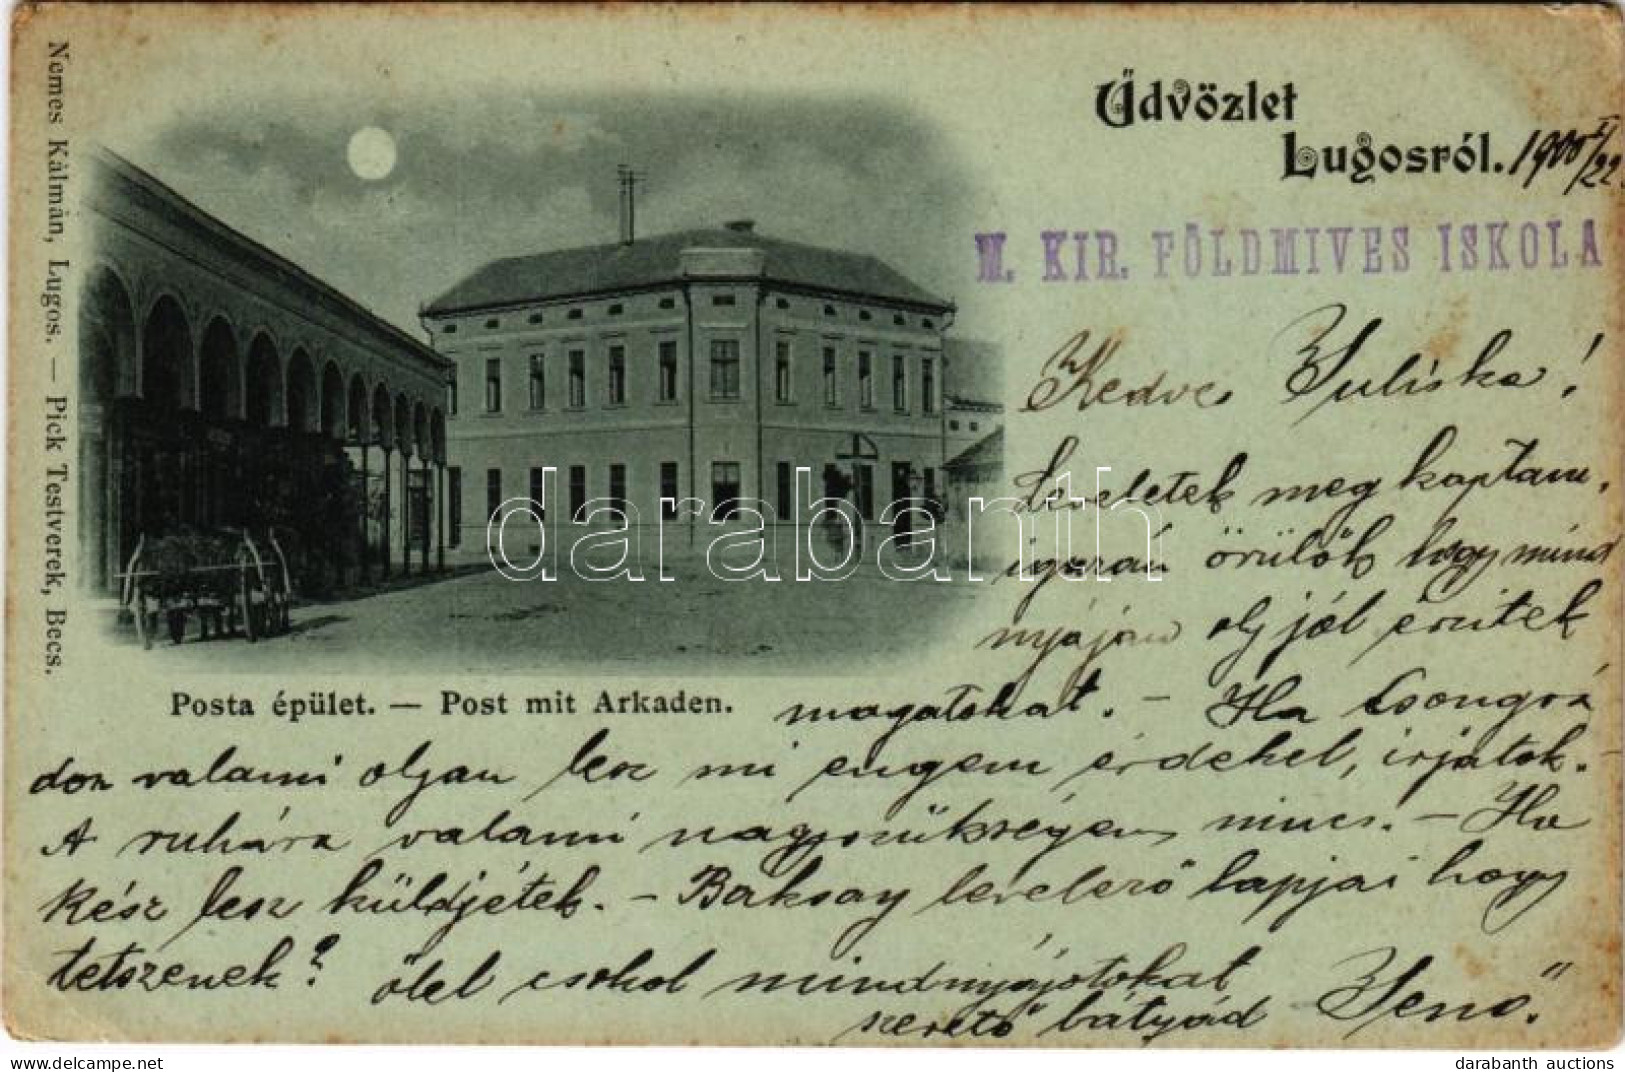 Üdvözlet
Lugosról. 1900 II/22.
M. KIR. FÖLDMIVES ISKOLA
Nemes Kálmán, Lugos. — Pick Testverek, Becs.
Posta épület. — Post mit Arkaden.
Kedves Juliska!
Leveletek meg kaptam,
igazán örülök hogy mind
nyáján oly jól érzitek
magatokat. – Ha Csongrá
don valami olyan lesz mi engem érdekel, irjatok. –
A ruhára valami nagy szükségem nincs. – Ha
kész lesz küldjétek. – Baksay levelező lapjai hogy
tetszenek? ölel csokol mindnyájotokat
szerető bátyád Jenő."
darabanth
darabanth auctions